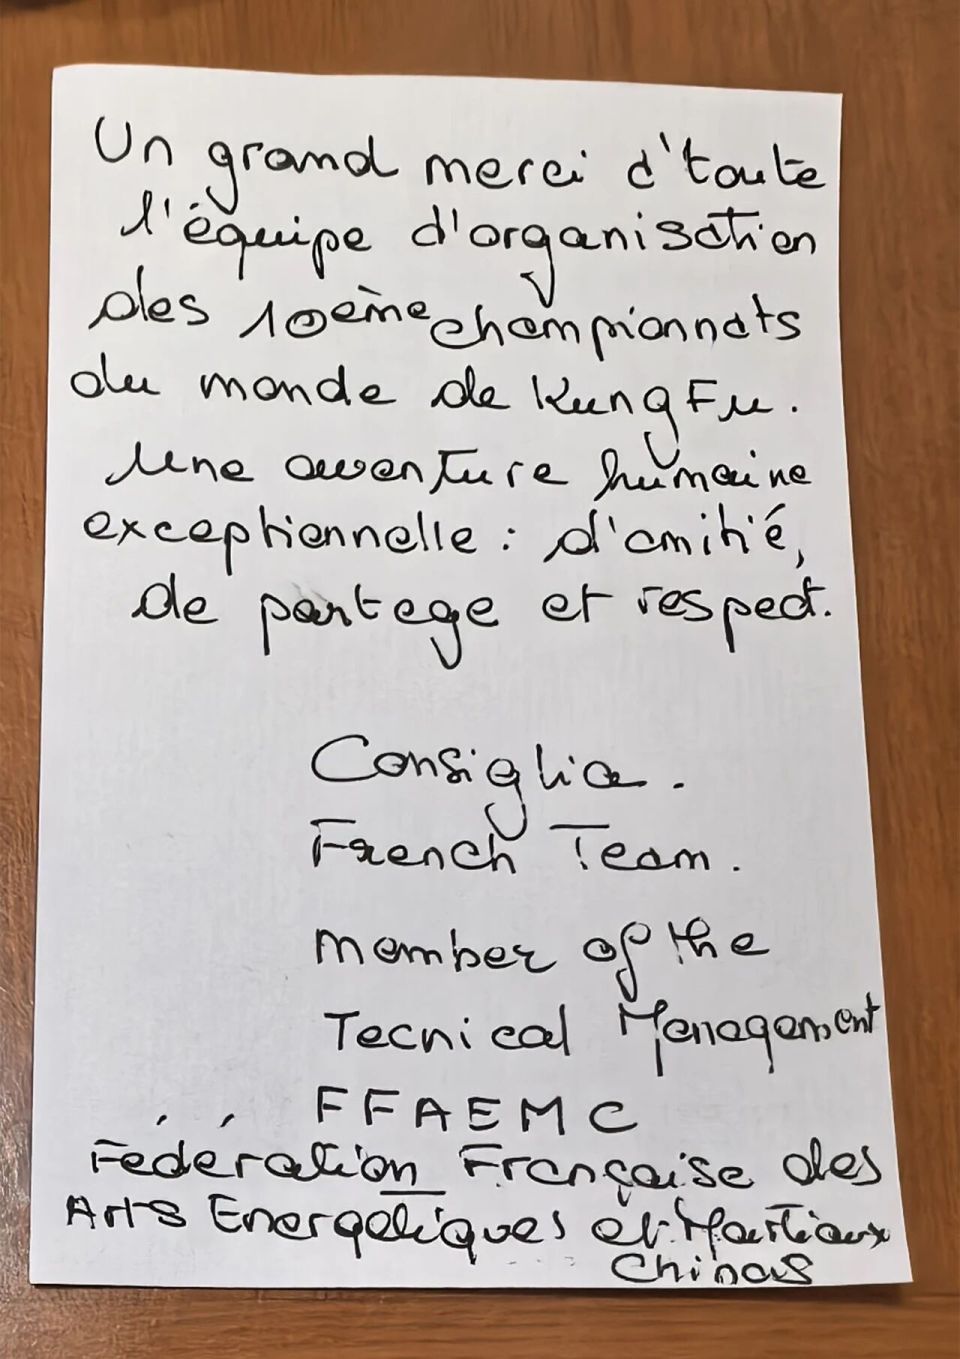 Un grand merci d'toute
l'équipe d'organisation
des 10ème championnats
du monde de Kung Fu.
Une aventure humaine
exceptionnelle : d'amitié,
de partage et respect.
Consiglia.
French Team.
Member of the
Tecnical Management
FFAEMC
Fédération Française des
Arts Energétiques et Martiaux
Chinois